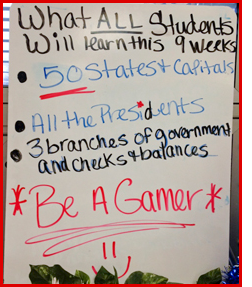 What ALL Students
Will learn this 9 weeks
• 50 States & Capitals
• All the Presidents
• 3 branches of government
and checks & balances
*Be A Gamer*